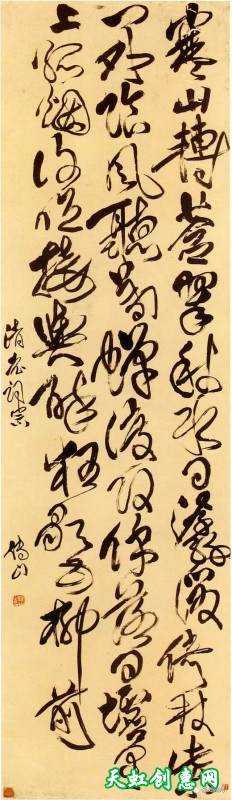 寒山轉蒼翠秋水日潺湲倚杖柴
門外臨風聽暮蟬渡頭餘落日墟里
上孤煙復值接輿醉狂歌五柳前
老詞宗
傅山
天虹创惠网